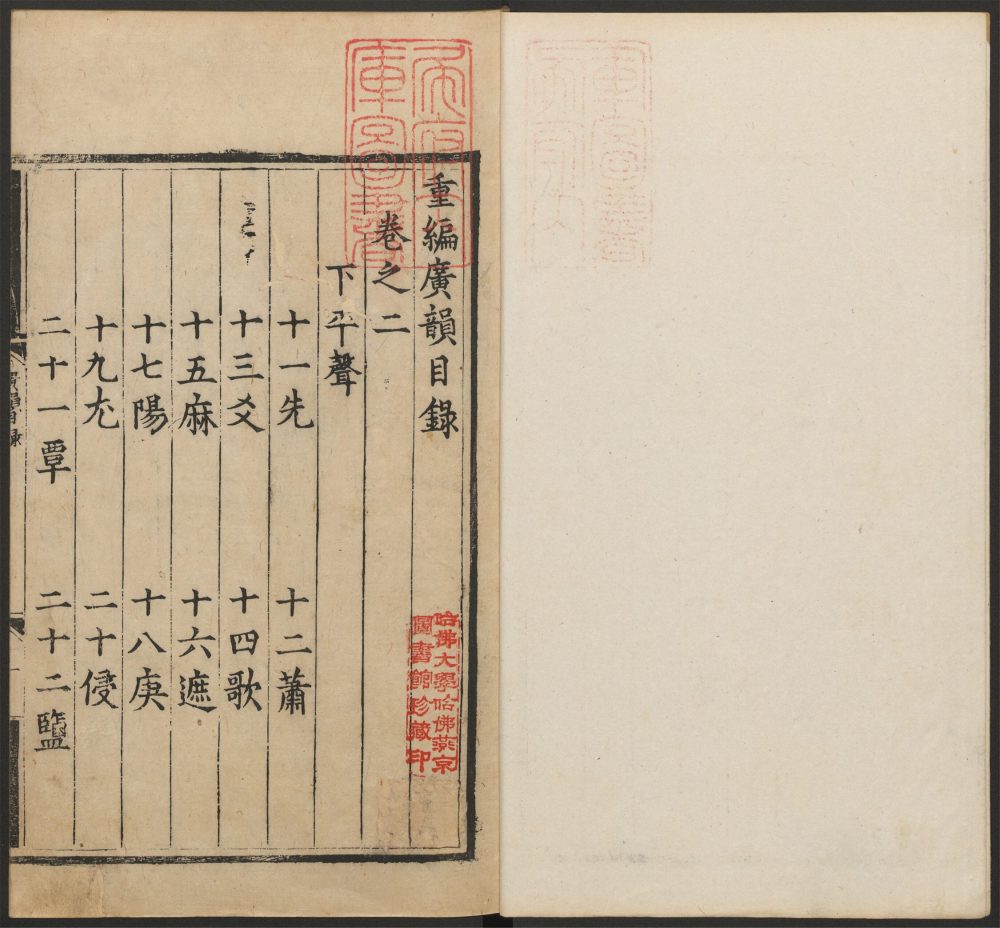 重編廣韻目錄
卷之二
下平聲
十一先 十二蕭
十三爻 十四歌
十五麻 十六遮
十七陽 十八庚
十九尤 二十侵
二十一覃 二十二鹽
哈佛大學哈佛燕京
圖書館珍藏印